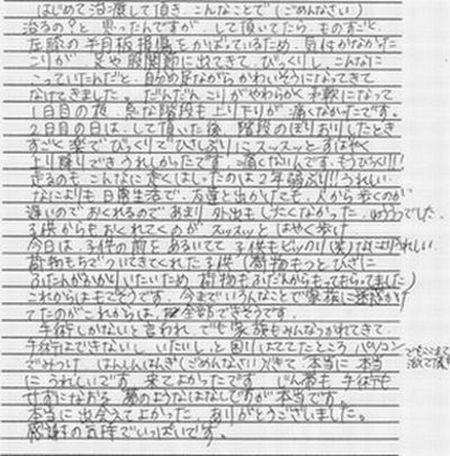 はじめて治療して頂き、こんなことで(ごめんなさい)
治るの?と思ったんですが、して頂いてたら、ものすごく
左膝の半月板損傷をかばっているため、気付かなかった
こりが、足や股関節に出てきて、びっくりし、こんなに
こっていたんだと、自分の足ながらかわいそうになってきて
なけてきました。だんだんこりがやわらかく柔軟になって
1日目の夜、急な階段も上り下りが痛くなかったです。
2日目の日は、して頂いた後、階段のぼりおりしたとき
すごく楽でびっくりでひさしぶりにスッスッとすばやく
上り降りできうれしかったです。痛くないんです。もうびっくり!!
走るのもこんなに速くはしったのは2年弱ぶり!!うれしい
なによりも日常生活で、友達と出かけても、人から歩くのが
遅いのでおくれるのであまり外出もしたくなかった、ゆううつでした。
子供からもおくれてくのが スッスッと はやく歩け
今日は、子供の前をあるいてて子供もビックリ(笑)なによりうれしい
荷物もちでついてきてくれた子供(荷物もつとひざに
ふたんがかかりいたいため荷物もふだんからもってもらってました)
これからはもてそうです。今までいろんなことで家族に迷惑かけ
てたのがこれからは、全部できそうです。
手術しかないと言われ、でも家族もみんなつかれてきて、
手術はできないし、いたいし、と困りはててたところ パソコン
でみつけ はんしんはんぎ(ごめんなさい)できて 本当に 本当
に うれしいです。来てよかったです。じん帯も 手術も
せずになおる 夢のようなはなしですが本当です。
本当に出会えてよかった。ありがとうございました。
感謝の気持でいっぱいです。